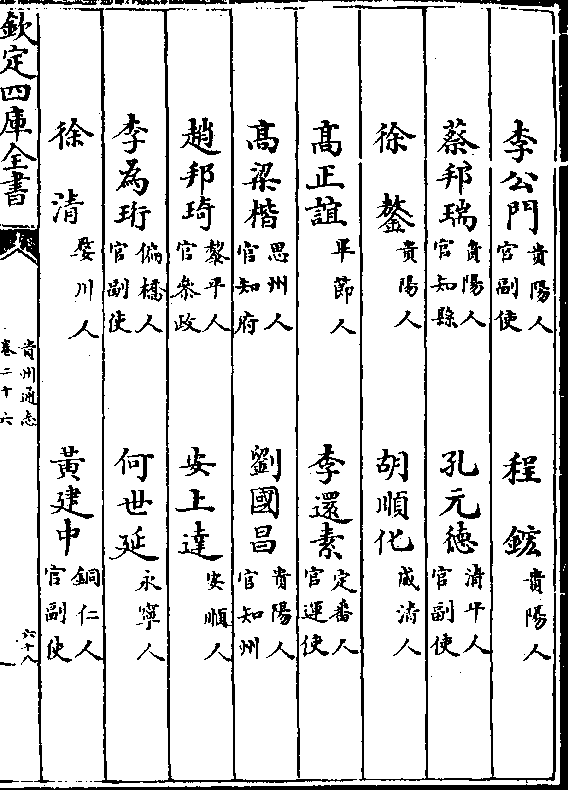 李公門 貴陽人官副使 程鋐 貴陽人
蔡邦瑞 貴陽人官知縣 孔元德 清平人官副使
徐鏊 貴陽人 胡順化 威清人
髙正誼 平節人 李還素 定番人官運使
髙梁楷 思州人官知府 劉國昌 貴陽人官知州
趙邦琦 黎平人官參政 安上達 安順人
李為珩 偏橋人官副使 何世延 永寧人
徐清 婺川人 黃建中 銅仁人官副使
欽定四庫全書 貴州通志 卷二十六 六十八